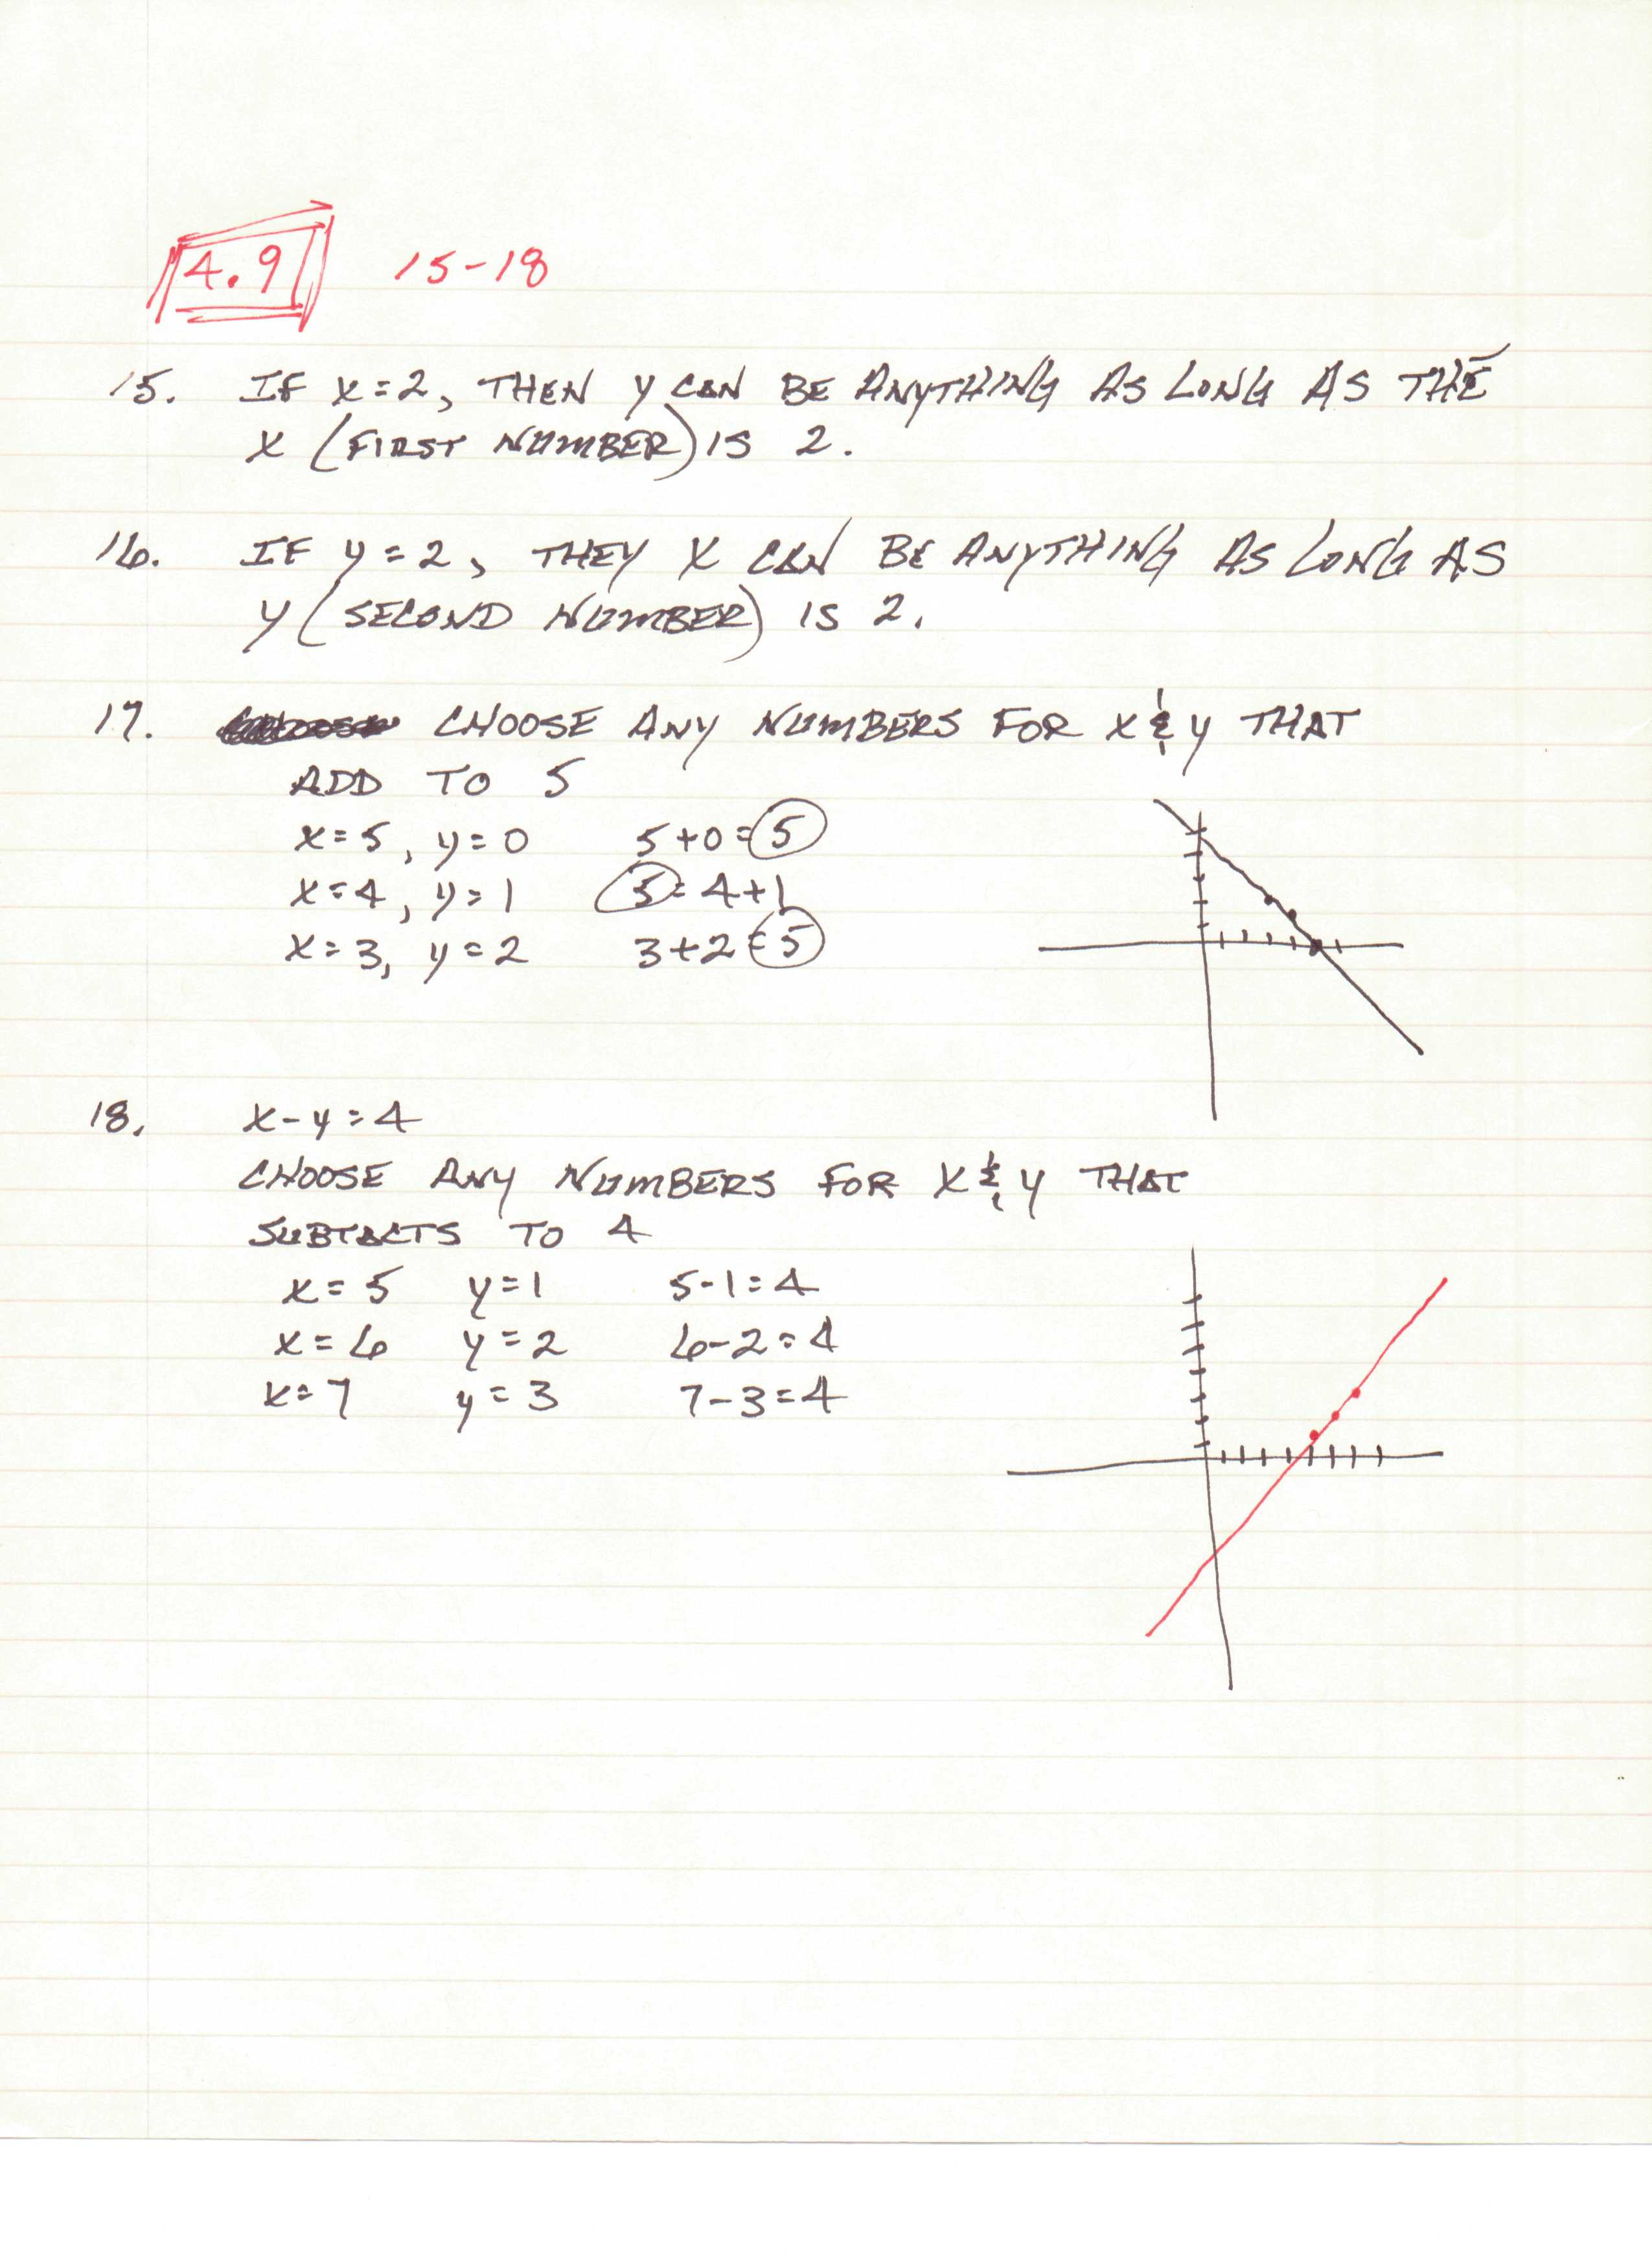 4.9 15-18
15. IF X=2, THEN Y CAN BE ANYTHING AS LONG AS THE
X (FIRST NUMBER) IS 2.
16. IF Y=2, THEY X CAN BE ANYTHING AS LONG AS
Y (SECOND NUMBER) IS 2.
17. CHOOSE ANY NUMBERS FOR X & Y THAT
ADD TO 5
X=5, Y=0 5+0=5
X=4, Y=1 5=4+1
X=3, Y=2 3+2=5
18. X-Y=4
CHOOSE ANY NUMBERS FOR X & Y THAT
SUBTACTS TO 4
X=5 Y=1 5-1=4
X=6 Y=2 6-2=4
X=7 Y=3 7-3=4